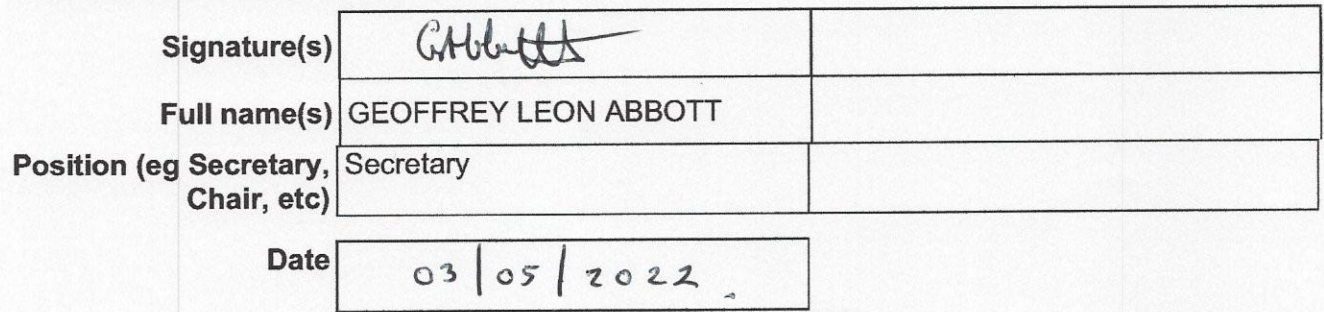 Signature(s) GAbbott
Full name(s) GEOFFREY LEON ABBOTT
Position (eg Secretary, Secretary
Chair, etc)
Date 03/05/2022